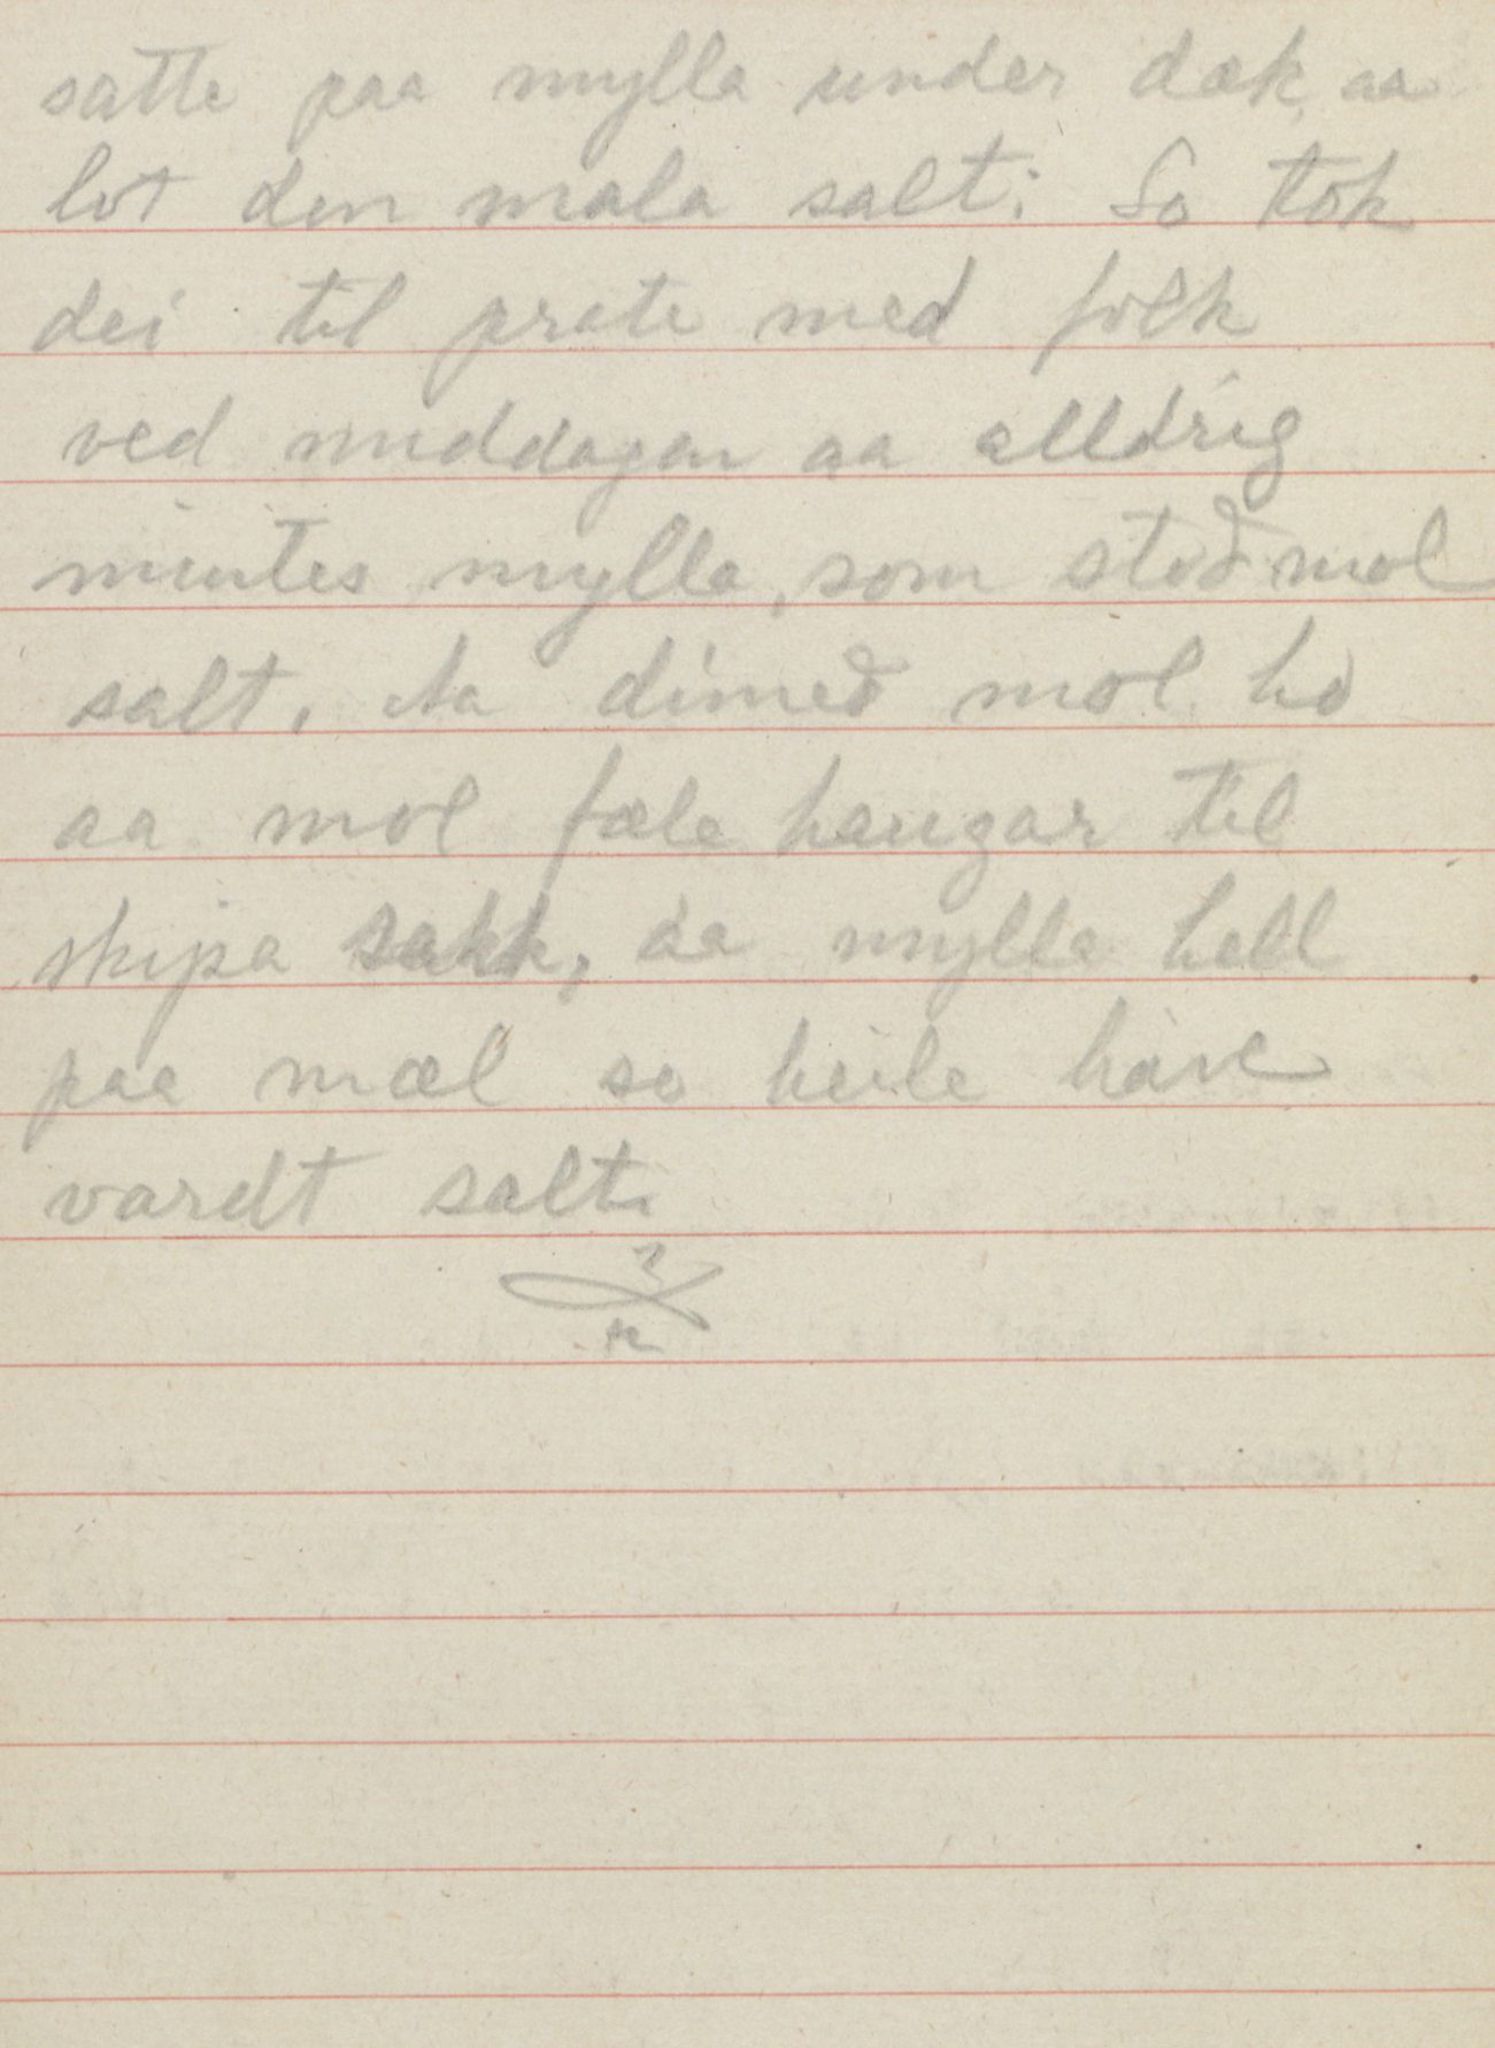 satte paa mylla under dæk, aa
lot den mala salt. So tok
dei til prate med folk
ved middagen aa alldrig
mintes mylla, som stod mol
salt. Aa dimed mol ho
aa mol fæle haugar til
skipa sakk, aa mylla hell
paa mæl so heile have
vardt salt.